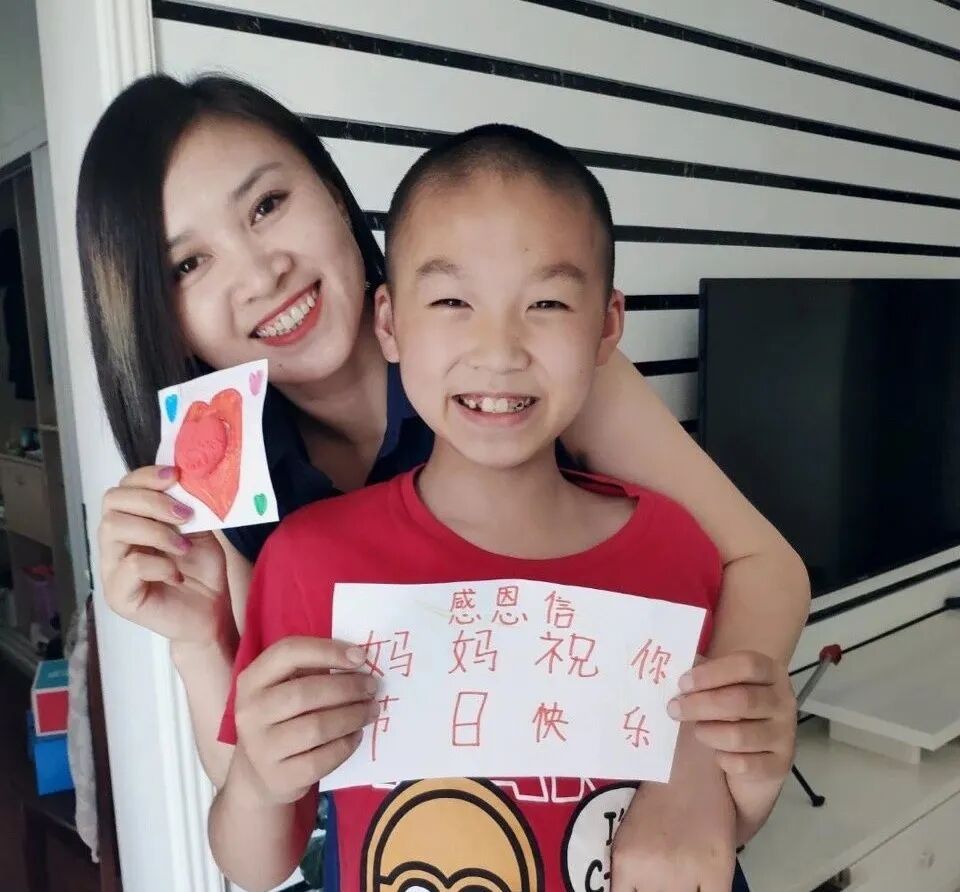 感恩信
妈妈祝你
节日快乐
I'